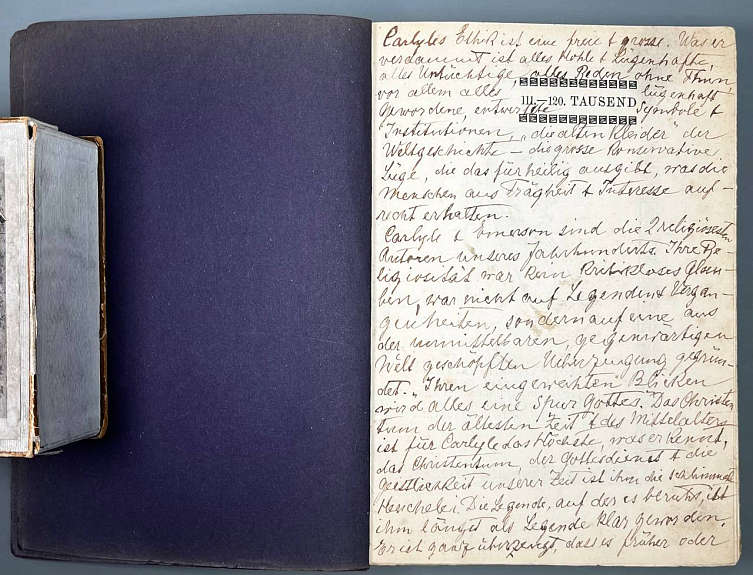 Carlyles Ethik ist eine freie & grosse. Was er
verdammt ist alles Hohle & Lügenhafte,
alles Untüchtige, alles Reden ohne Thun,
vor allem alles lügenhaft
Gewordene, entwertete Symbole &
111.–120. TAUSEND
Institutionen, „die alten Kleider" der
Weltgeschichte – die grosse Konservative
Lüge, die das für heilig ausgibt, was die
Menschen aus Trägheit & Interesse auf-
recht erhalten.
Carlyle & Emerson sind die 2 religiösesten
Autoren unseres Jahrhunderts. Ihre Re-
ligiosität war kein kritikloses Glau-
ben, war nicht auf Legenden & Vergan-
genheiten, sondern auf eine aus
der unmittelbaren, gegenwärtigen
Welt geschöpften Ueberzeugung gegrün-
det. „Ihren eingeweihten Blicken
wird alles eine Spur Gottes." Das Christen
tum der ältesten Zeit & des Mittelalters
ist für Carlyle das Höchste, was er kennt,
das Christentum, der Gottesdienst & die
Geistlichkeit unserer Zeit ist ihm die schlimmste
Heuchelei. Die Legende, auf der es beruht, ist
ihm längst als Legende klar geworden,
Er ist ganz überzeugt, dass es früher oder